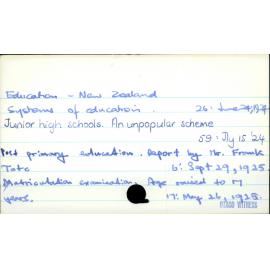 Education - New Zealand
Systems of education. 26: June 24, 1924
Junior high schools. An unpopular scheme
59: Jly 15 '24
Post primary education. Report by Mr. Frank
Tate 6: Sept 29, 1925.
Matriculation examination. Age raised to 17
years. 17: May 26, 1925.
OTAGO WITNESS